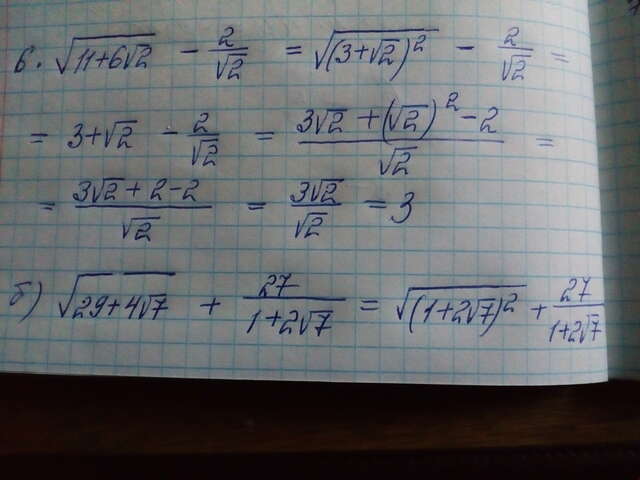 6. √(11+6√2) - 2/√2 = √((3+√2)²) - 2/√2 =
= 3+√2 - 2/√2 = (3√2 + (√2)² - 2)/√2 =
= (3√2 + 2 - 2)/√2 = 3√2/√2 = 3
б) √(29+4√7) + 27/(1+2√7) = √((1+2√7)²) + 27/(1+2√7)